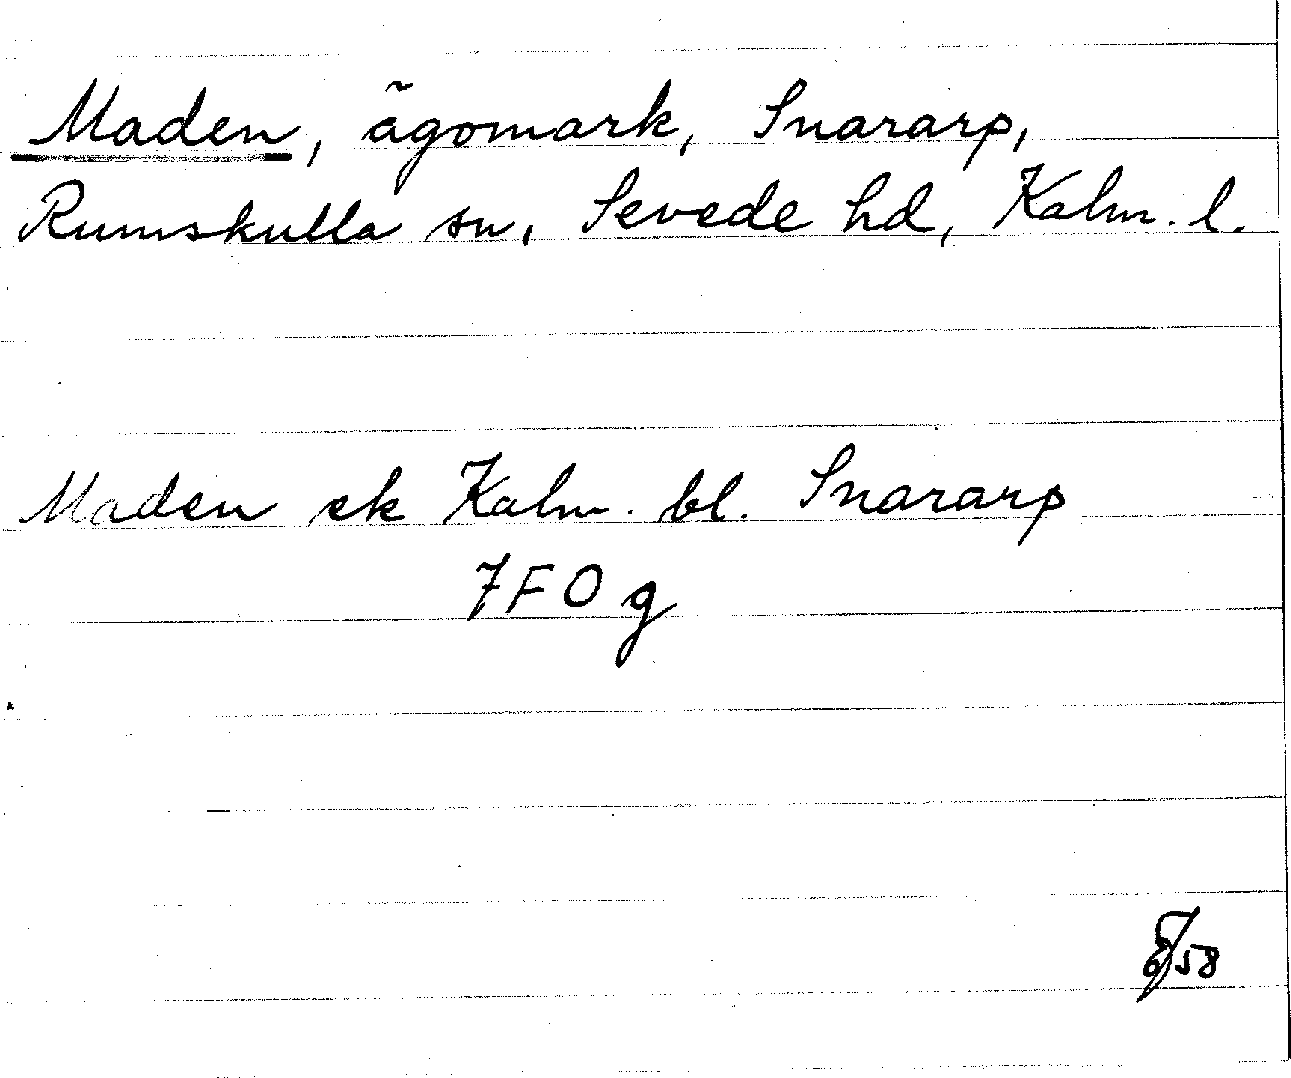 Maden, ägomark, Snararp,
Rumskulla sn, Sevede hd, Kalm. l.
Maden ek Kalm. bl. Snararp
7 F 0 g
/58